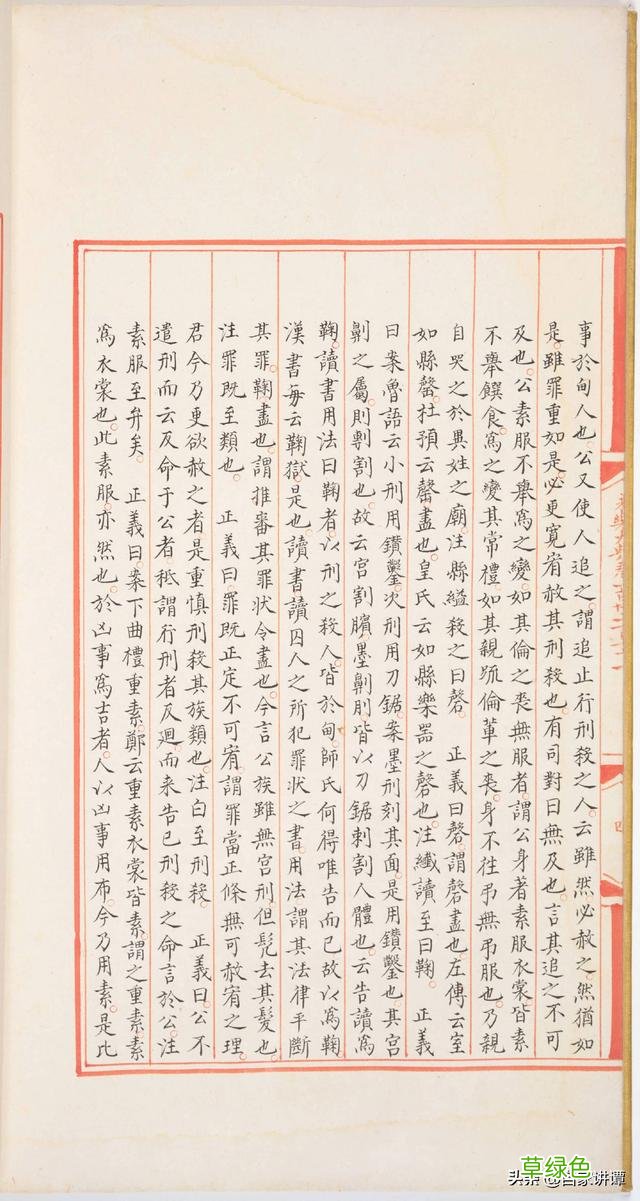 事於甸人也公又使人追之謂追止行刑殺之人云雖然必赦之然猶如
是雖罪重如是必更寬宥赦其刑殺也有司對曰無及也言其追之不可
及也公素服不舉為之變如其倫之喪無服者謂公身著素服衣裳皆素
不舉饌食為之變其常禮如其親疏倫輩之喪身不往弔無弔服也乃親
自哭之於異姓之廟注縣縊殺之曰磬 正義曰磬謂磬盡也左傳云室
如縣罄杜預云罄盡也皇氏云如縣樂器之磬也注纖讀至曰鞠 正義
曰案魯語云小刑用鑽鑿次刑用刀鋸案墨刑刻其面是用鑽鑿也其宮
劓之屬則剸割也故云宮割臏墨劓刖皆以刀鋸刺割人體也云告讀為
鞠讀書用法曰鞠者以刑之殺人皆於甸師氏何得唯告而已故以為鞠
漢書每云鞠獄是也讀書讀囚人之所犯罪狀之書用法謂其法律平斷
其罪鞠盡也謂推審其罪狀令盡也今言公族雖無宮刑但髡去其髮也
注罪既至類也 正義曰罪既正定不可宥謂罪當正條無可赦宥之理
君今乃更欲赦之者是重慎刑殺其族類也注白至刑殺 正義曰公不
遣刑而云反命于公者秪謂行刑者反迴而来告已刑殺之命言於公注
素服至弁矣 正義曰案下曲禮重素鄭云重素衣裳皆素謂之重素素
為衣裳也此素服亦然也於凶事為吉者人以凶事用布今乃用素是比
四
草绿色
头条 @百家讲谭